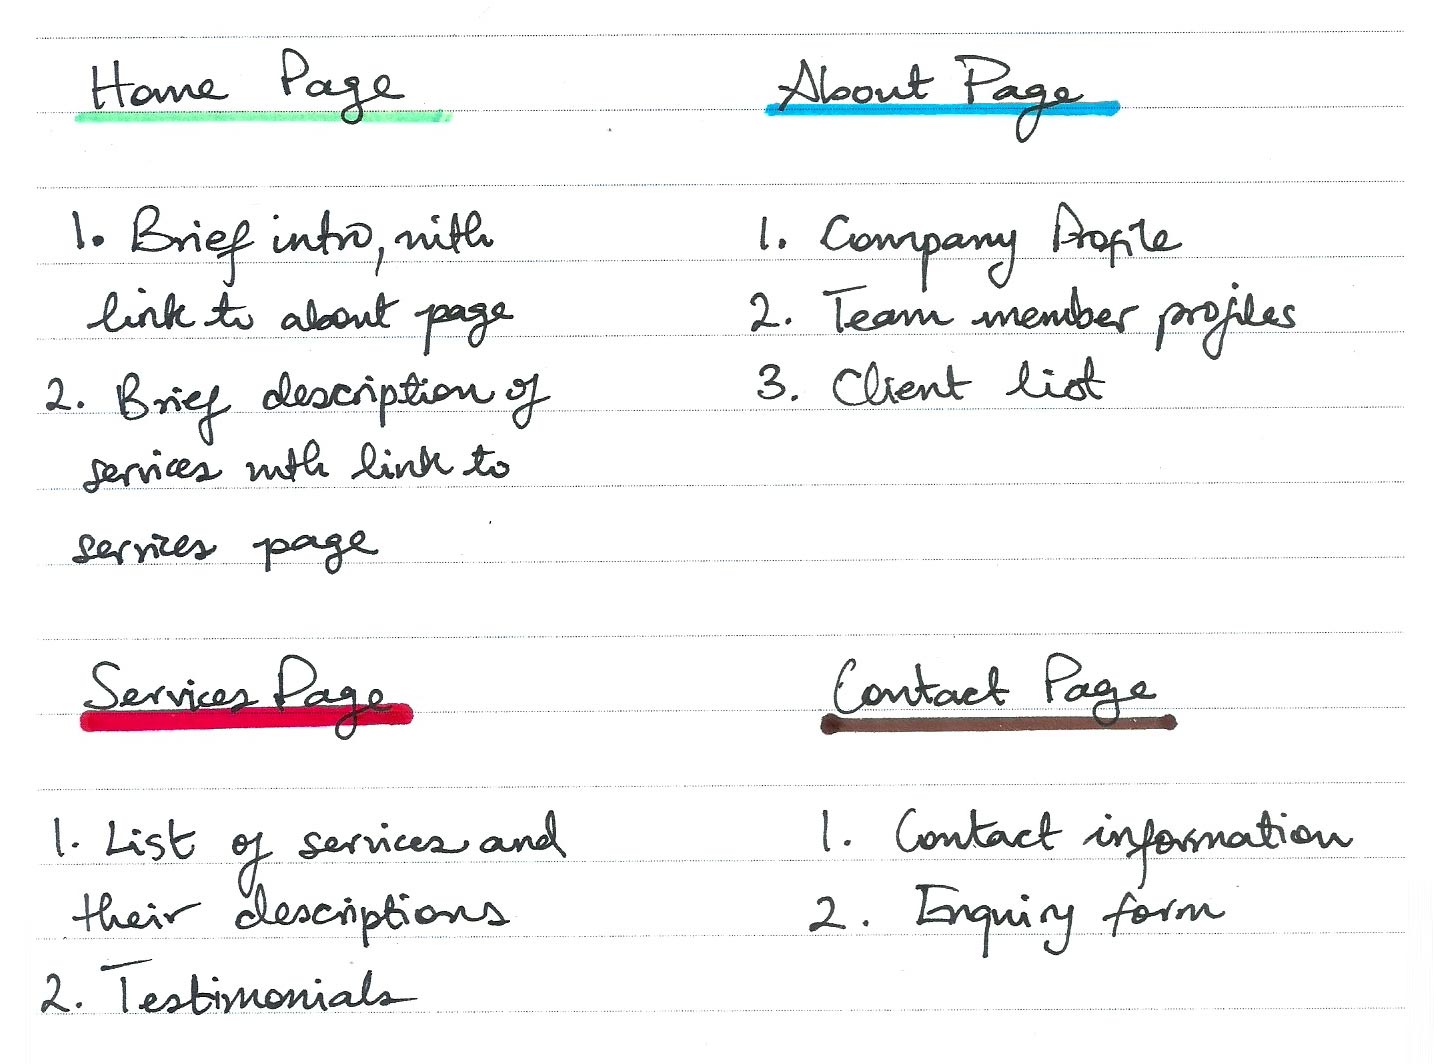 Home Page
1. Brief intro, with
link to about page
2. Brief description of
services with link to
services page
About Page
1. Company Profile
2. Team member profiles
3. Client list
Services Page
1. List of services and
their descriptions
2. Testimonials
Contact Page
1. Contact information
2. Enquiry form